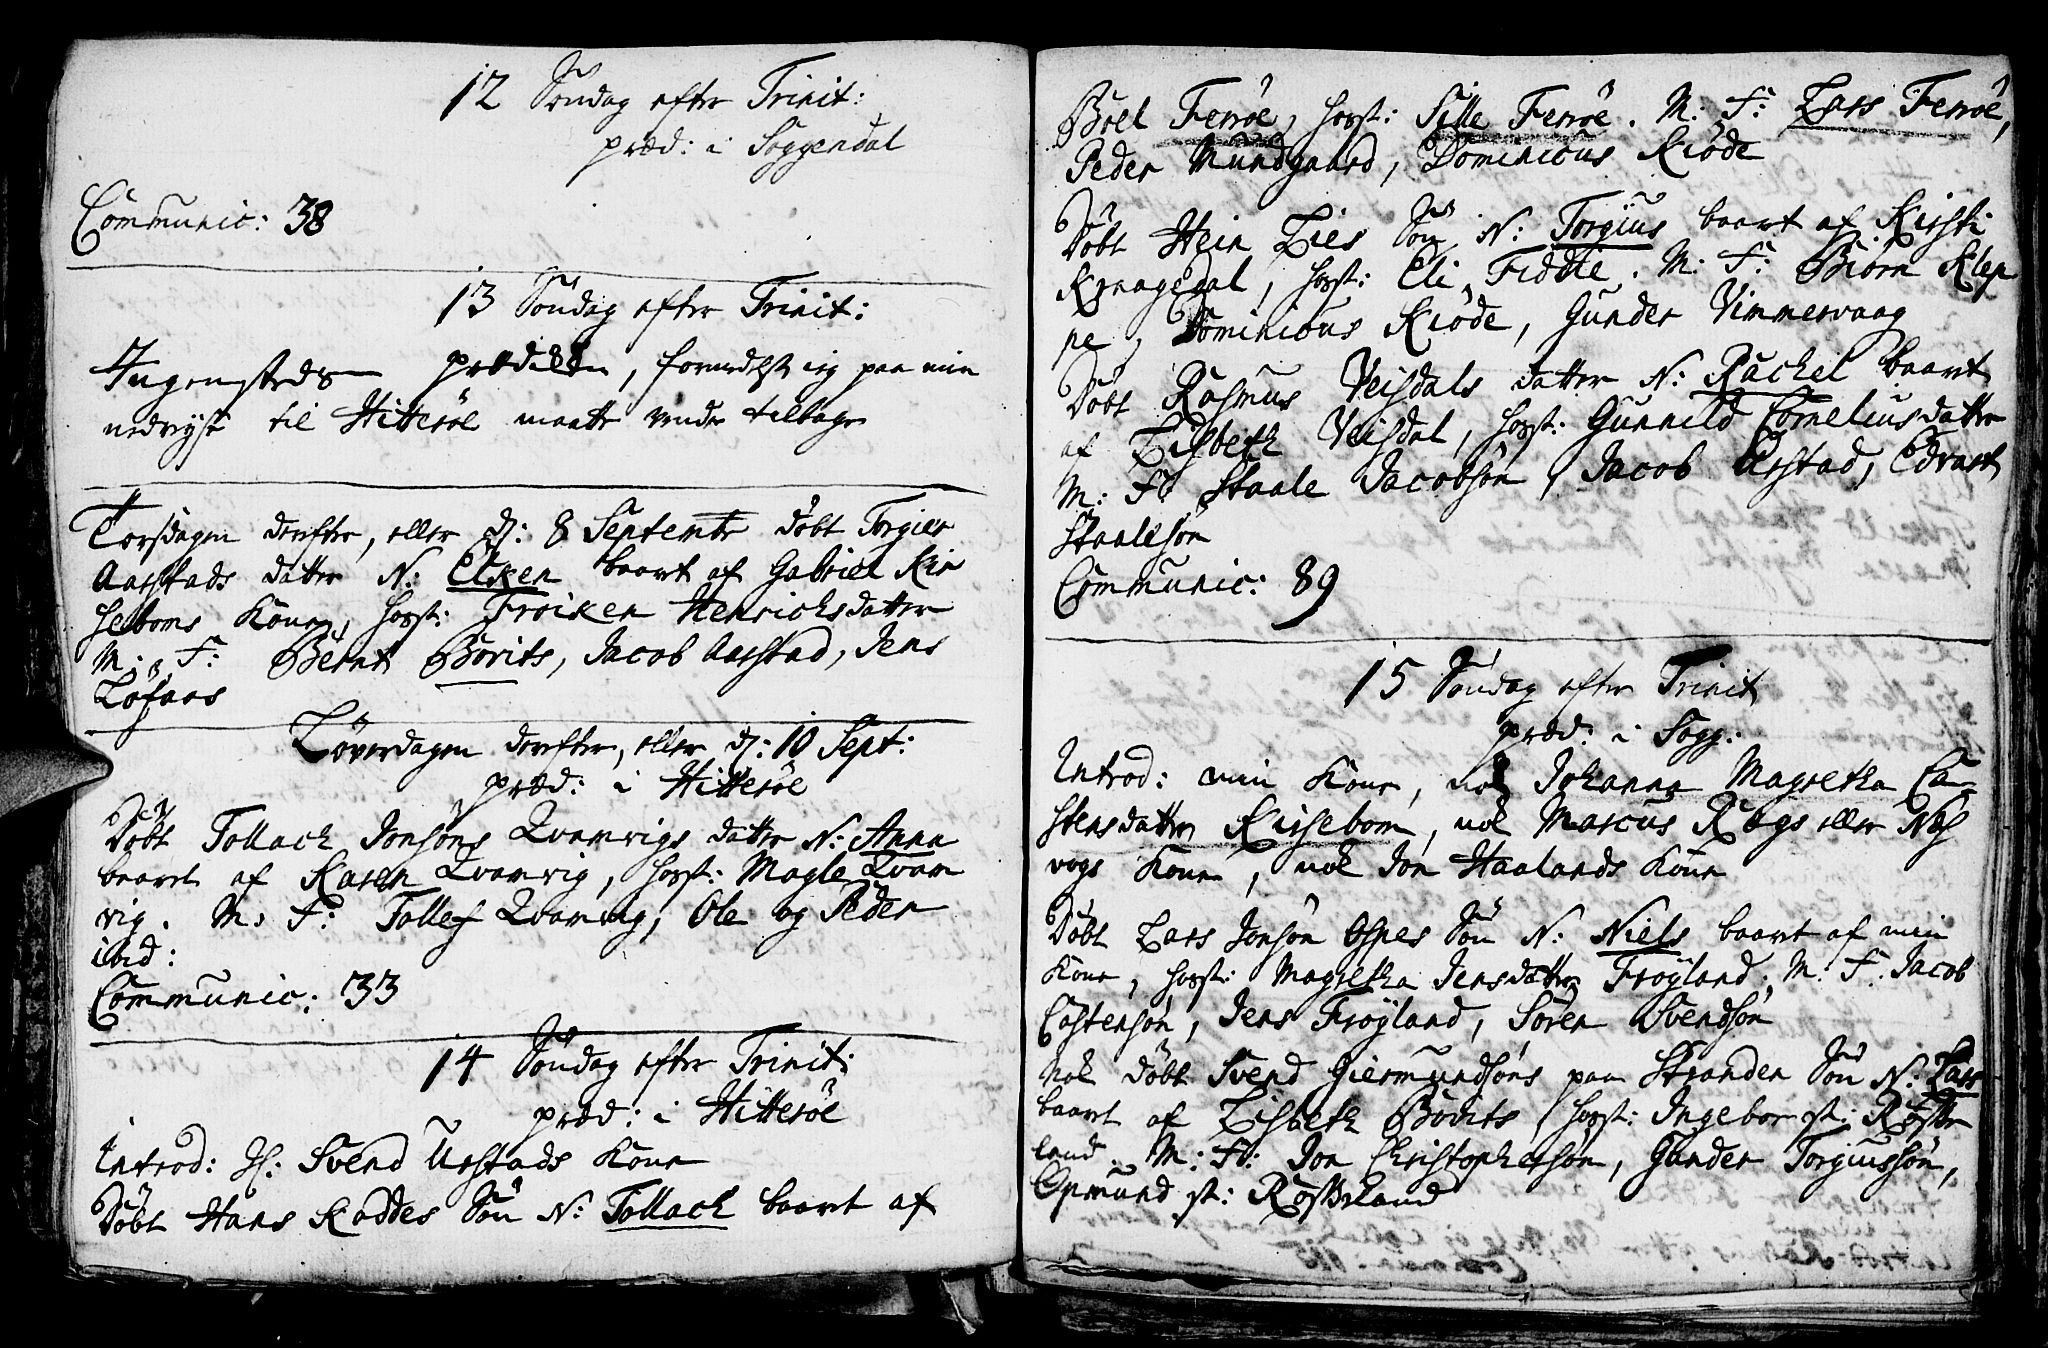 12 Søndag efter Trinit:
præd: i Soggendal
Communic: 38
13 Søndag efter Trinit:
Ingensteds prædiken, formedelst ieg paa min
nedreyse til Hitterøe maatte vende tilbage
Torsdagen derefter, eller d: 8 Septembr døbt Torgier
Aarstads datter N: Elken baaret af Gabriel Kir
seboms Kone, hosst: Froiken Henrichsdatter
M: F: Bernt Borits, Jacob Aarstad, Jens
Løfaas
Løverdagen derefter, eller d: 10 Sept:
præd: i Hitterøe
Døbt Tollach Jonsøns Qvamvigs datter N: Anna
baaret af Karen Qvamvig, hosst: Magle Qvam
vig. M: F: Tollef Qvamvig, Ole og Peder
ibid:
Communic: 33
14 Søndag efter Trinit:
præd: i Hitterøe
Introd: Svend Urstads Kone
Døbt Hans Raddes Søn N: Tollach baaret af
Boel Ferrøe, hosst: Sille Ferrøe. M: F: Lars Ferrøe,
Peder Mundgaard, Dominicus Kiøde
Døbt Hein Lies Søn N: Torgius baaret af Kirsti
Kraagedal, hosst: Eli Fidtle. M: F: Biørn Klep
pe, Dominicus Kiøde, Gunder Vimmervaag
Døbt Rasmus Veisdals datter N: Rachel baaret
af Lisbeth Veisdal, hosst: Gunnild Corneliusdatter
M: F: Staale Jacobsøn, Jacob Aarstad, Edvart
Staalesøn
Communic: 89
15 Søndag efter Trinit
præd: i Sogg:
Introd: min Kone, nok Johanna Magretha Ca-
stensdatter Kirsebom, nok Marcus Rægs eller
vogs Kone, nok Jon Haalands Kone
Døbt Lars Jonsøn Ospes Søn N: Niels baaret af min
Kone, hosst: Magretha Jensdatter Frøyland. M: F: Jacob
Castensøn, Jens Frøyland, Søren Svendsøn
Nok døbt Svend Giermundsøns paa Stranden Søn N: Lars
baaret af Lisbeth Bodits, hosst: Ingebor st: Røstø
land. M: F: Jon Christophersøn, Gunder Torgiussøn,
Omund st: Røstøland